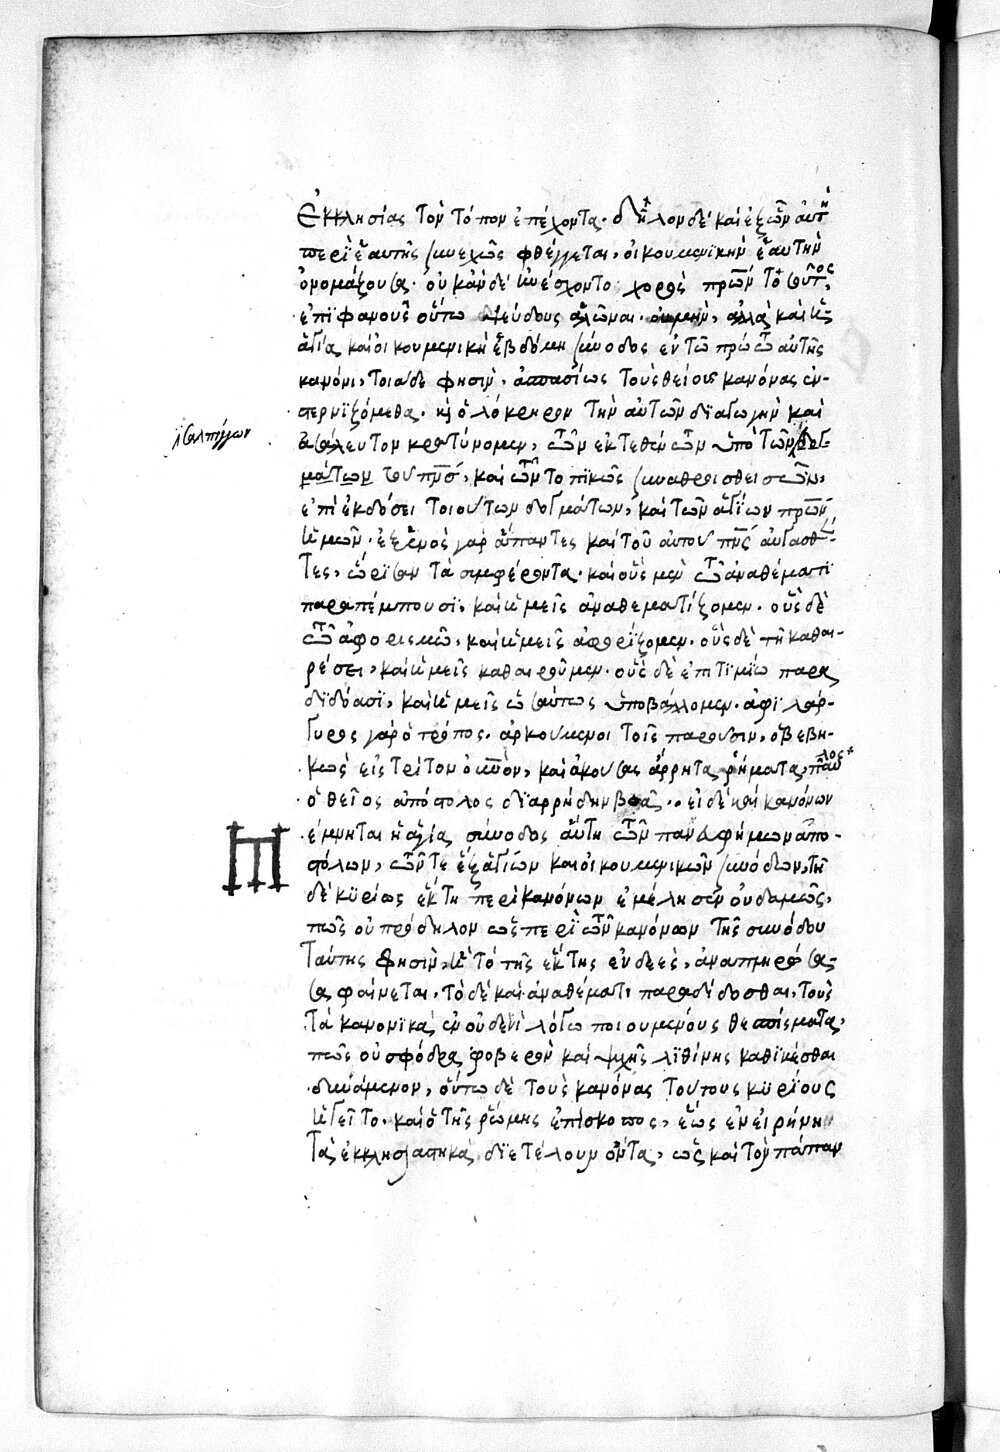 Ἐκκλησίας τὸν τόπον ἐπέχοντα. δῆλον δὲ καὶ ἐξ ὧν αὐτὴ
περὶ ἑαυτῆς συνεχῶς φθέγγεται, οἰκουμενικὴν ἑαυτὴν
ὀνομάζουσα. οὐκ ἂν δὲ ἠνέσχοντο χορὸς πρων τοσοῦτος,
ἐπιφανοῦς οὕτω ψεύδους ἁλῶναι. ἀλλὰ καὶ ἡ
ἁγία καὶ οἰκουμενικὴ ἑβδόμη σύνοδος ἐν τῶ πρώτω αὐτῆς
κανόνι, τοιάδε φησὶν, ἀσπασίως τοὺς θείους κανόνας ἐν-
στερνϊζόμεθα. καὶ ὁλόκληρον τὴν αὐτῶν διαταγὴν καὶ
ἀσάλευτον κρατύνομεν, τῶν ἐκτεθέντων ὑπὸ τῶν
σαλπίγγων
τοῦ πνς, καὶ τῶν τοπϊκῶς συναθροισθεισῶν,
ἐπὶ ἐκδόσει τοιούτων δογμάτων, καὶ τῶν ἁγίων πρων
ἡμῶν. ἐξ ἑνὸς γὰρ ἅπαντες καὶ τοῦ αὐτοῦ πνς αὐγασθέν-
τες, ὥρισαν τὰ συμφέροντα. καὶ οὓς μὲν τῶ ἀναθέματι
παραπέμπουσϊ, καὶ ἡμεῖς ἀναθεματίζομεν. οὓς δὲ
τῶ ἀφορισμῶ, καὶ ἡμεῖς ἀφορίζομεν. οὓς δὲ τῆ καθαι-
ρέσει, καὶ ἡμεῖς καθαιροῦμεν. οὓς δὲ ἐπιτιμίω παρα
δϊδόασϊ, καὶ ἡμεῖς ὡσαύτως ὑποβάλλομεν. ἀφϊλάρ-
γυρος γὰρ ὁ τρόπος. ἀρκούμενοι τοῖς παροῦσιν, ὁ βεβη-
κὼς εἰς τρίτον οὐνον, καὶ ἀκούσας ἄρρητα ῥήματα, παῦλος
ὁ θεῖος ἀπόστολος διαρρήδην βοᾶ. εἰ δὲ καὶ κανόνων
ἐμνηται ἡ ἁγία σύνοδος αὕτη τῶν πανευφήμων ἀπο-
στόλων, τῶν τε ἓξ ἁγίων καὶ οἰκουμενικῶν συνόδων, τῆ
δὲ κϋρίως ἕκτη περὶ κανόνων ἐμέλησεν οὐδαμῶς,
πῶς οὐ πρόδηλον ὡς περὶ τῶν κανόνων τῆς συνόδου
ταύτης φησὶν, ἣ τὸ τῆς ἕκτης ἐνδεὲς, ἀναπληρώσα-
σα φαίνεται. τὸ δὲ καὶ ἀναθέματι παραδίδοσθαι, τοὺς
τὰ κανονϊκὰ ἐν οὐδενὶ λόγω ποιουμένους θεσπίσματα,
πῶς οὐ σφόδρα φοβερὸν καὶ ψχῆς λϊθίνης καθϊκέσθαι
δυνάμενον, οὕτω δὲ τοὺς κανόνας τούτους κϋρίους
ἡγεῖτο, καὶ ὁ τῆς ῥώμης ἐπίσκοπος, ἕως ἐν εἰρήνη
τὰ ἐκκλησιαστικὰ διετέλουν ὄντα, ὡς καὶ τὸν πάπαν